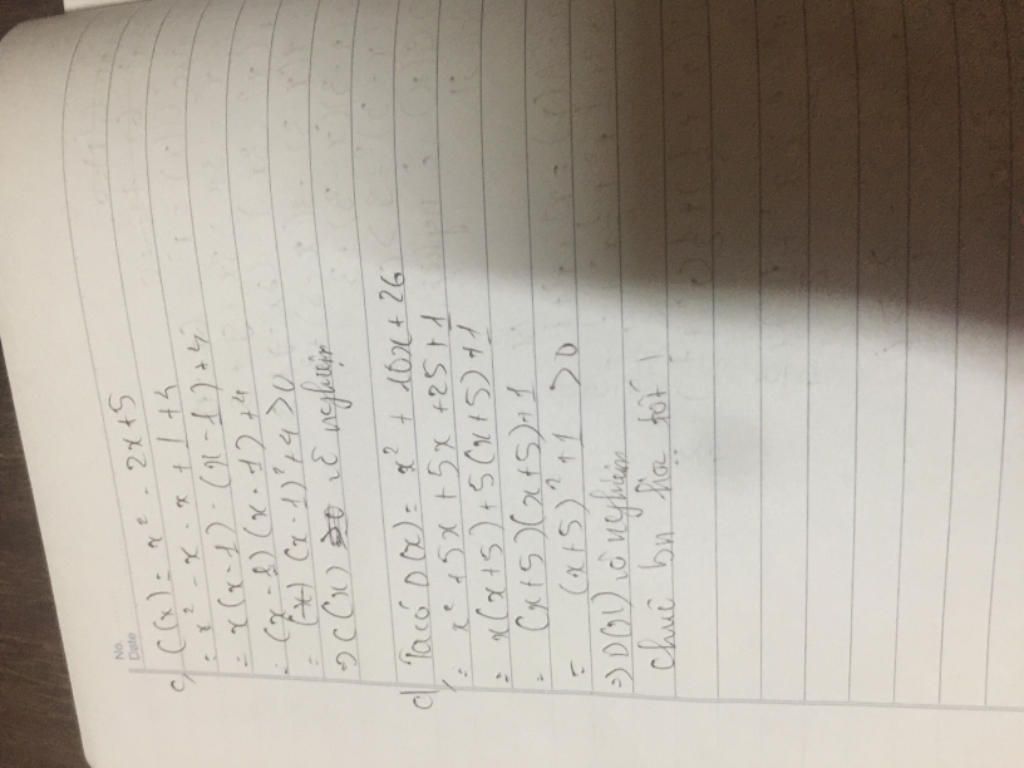 No.
Date
c, C(x) = x² - 2x+5
= x² - x - x + 1 + 4
= x(x-1) - (x-1)+4
= (x-1)(x-1)+4
= (x-1)²+4 >0
=> C(x) vô nghiệm
d, Ta có D(x) = x² + 10x+26
= x² +5x +5x +25+1
= x(x+5)+5(x+5)+1
= (x+5)(x+5)+1
= (x+5)²+1 >0
=> D(x) vô nghiệm
Chúc bn học tốt!